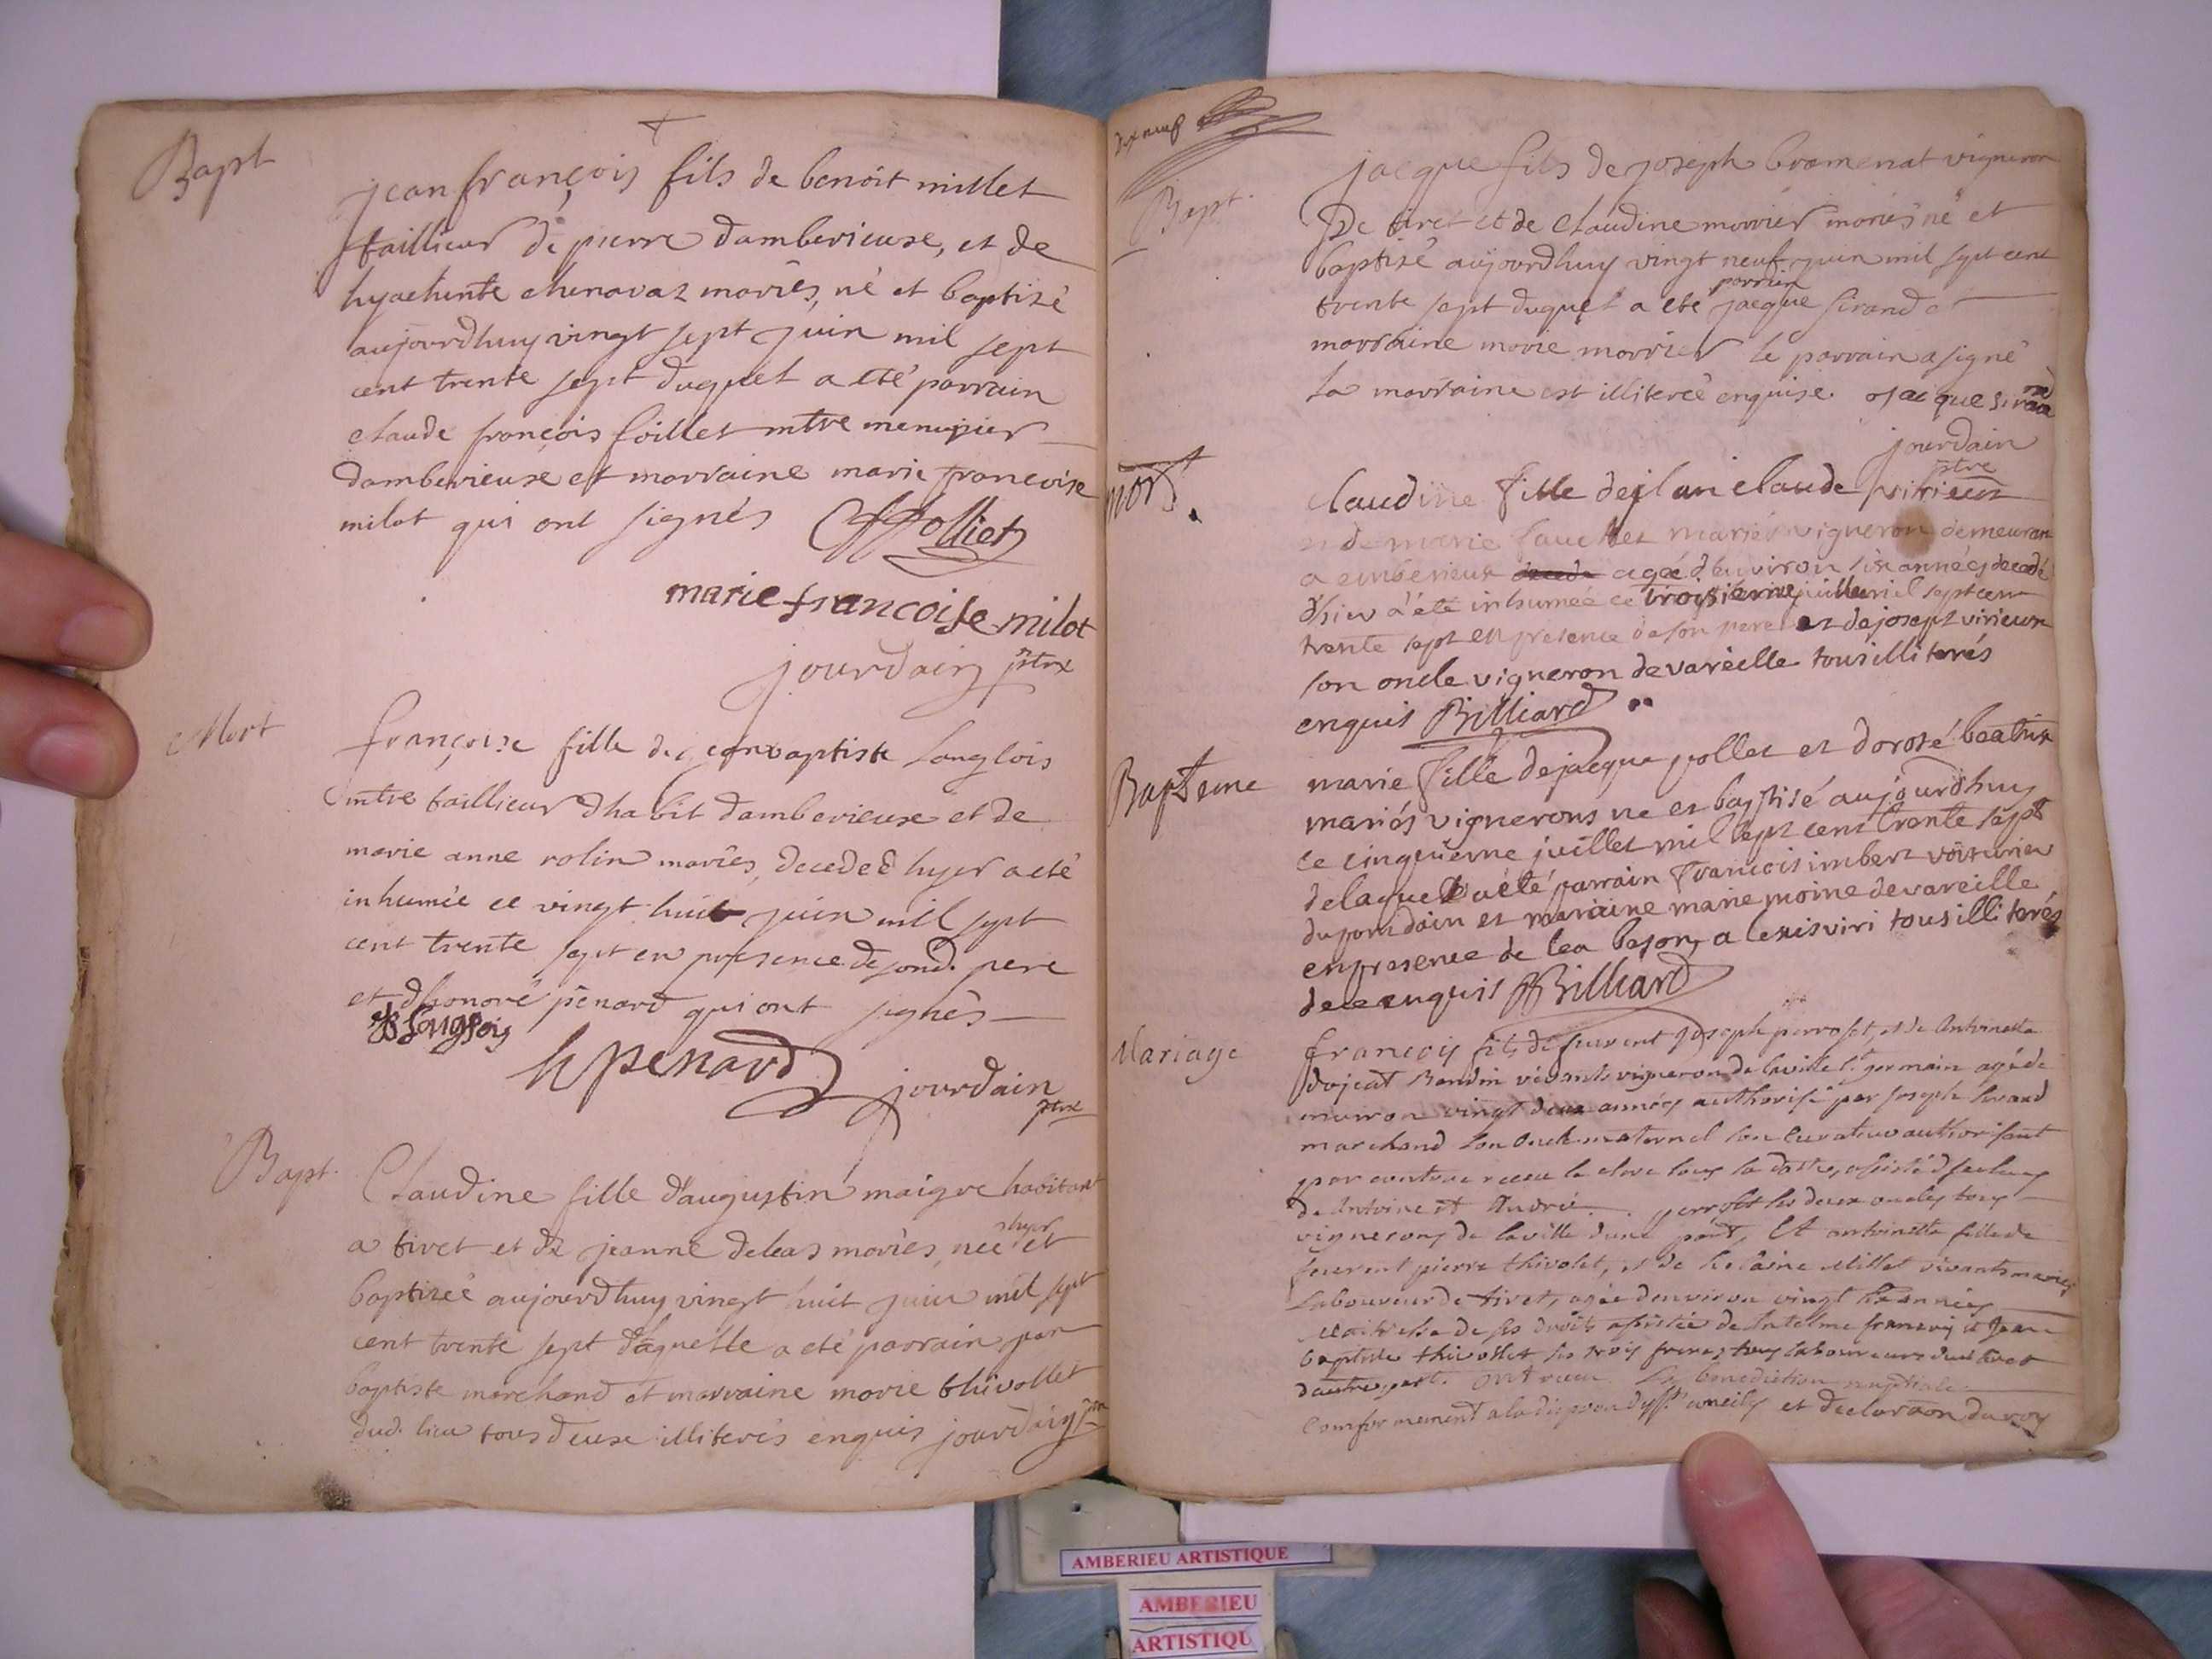 Bapt
jean françois fils de benoit millet
taillieur de pierre damberieuse, et de
hyachinte chenavaz mariés, né et baptizé
aujourdhuy vingt sept juin mil sept
cent trente sept duquel a eté parrain
claude françois foillet mtre menuizier
damberieuse et marraine marie francoise
milot qui ont signés CFfolliet
marie francoise milot
jourdain ptre
Mort
françoise fille de jean baptiste Langlois
mtre taillieur dhabit damberieuse et de
marie anne rolin mariés, decedeé hyer a eté
inhumée ce vingt huit juin mil sept
cent trente sept en presence de sond. pere
et dhonoré penard qui ont signés
JB Langlois
h penard jourdain
ptre
Bapt.
Claudine fille d'augustin maigre habitant
a tiret et de jeanne deleas mariés, neé hyer et
baptizeé aujourdhuy vingt huit juin mil sept
cent trente sept daquelle a eté parrain jean
baptiste marchand et marraine marie thivollet
dud. lieu tous deux illiterés enquis jourdain ptre
dix neuf
Bapt.
jacque fils de joseph bramenat vigneron
De tiret et de claudine morrier mariés né et
baptizé aujourdhuy vingt neuf juin mil sept cent
trente sept duquel a eté parrain jacque sirand et
marraine marie morrier le parrain a signé
la marraine est illitereé enquise. jacque sirand
jourdain
ptre
mort.
claudine fille de jean claude virieux
et de marie fauchez mariés vigneron demeuran
a emberieux ageé denviron six années decedé
dhier a été inhumée ce troisieme juillet mil sept cent
trente sept en presence de son pere et de joseph virieux
son oncle vigneron de vareille tous illiterés
enquis Billiard
Bapteme
marie fille de jacque pollet et dorote beatrix
mariés vignerons ne et baptisé aujourdhuy
ce cinquieme juillet mil sept cent trente sept
delaquel a été parrain francois imbert voiturier
du jourdain et maraine marie moine de vareille
en presence de lea beson, alexis viri tous illiterés
de ce enquis Billiard
Mariage
francois fils de feuvent joseph perroset, et de Antoinette
dojeat Bandin vivants vigneron de la ville st. germain agé de
environ vingt deux années authorisé par joseph sirand
marchand son oncle maternel son curateur authorisant
par contract receu
de Antoine et André perrolet ses deux oncles tous
vignerons de la ville dune part, Et antoinette fille de
feuvent pierre thivolet, et de helaine Millet vivants mariés
Labouveur de tiret, agée denviron vingt six années
Maitresse de ses droits assistée de Antelme francois et jean
baptiste thivollet ses trois freres tous laboureurs dud tiret
d'autre part. Ont receu La benediction nuptiale
Comformement a la disposon des st. conciles et declaraon du roy
AMBERIEU ARTISTIQUE
AMBERIEU
ARTISTIQU